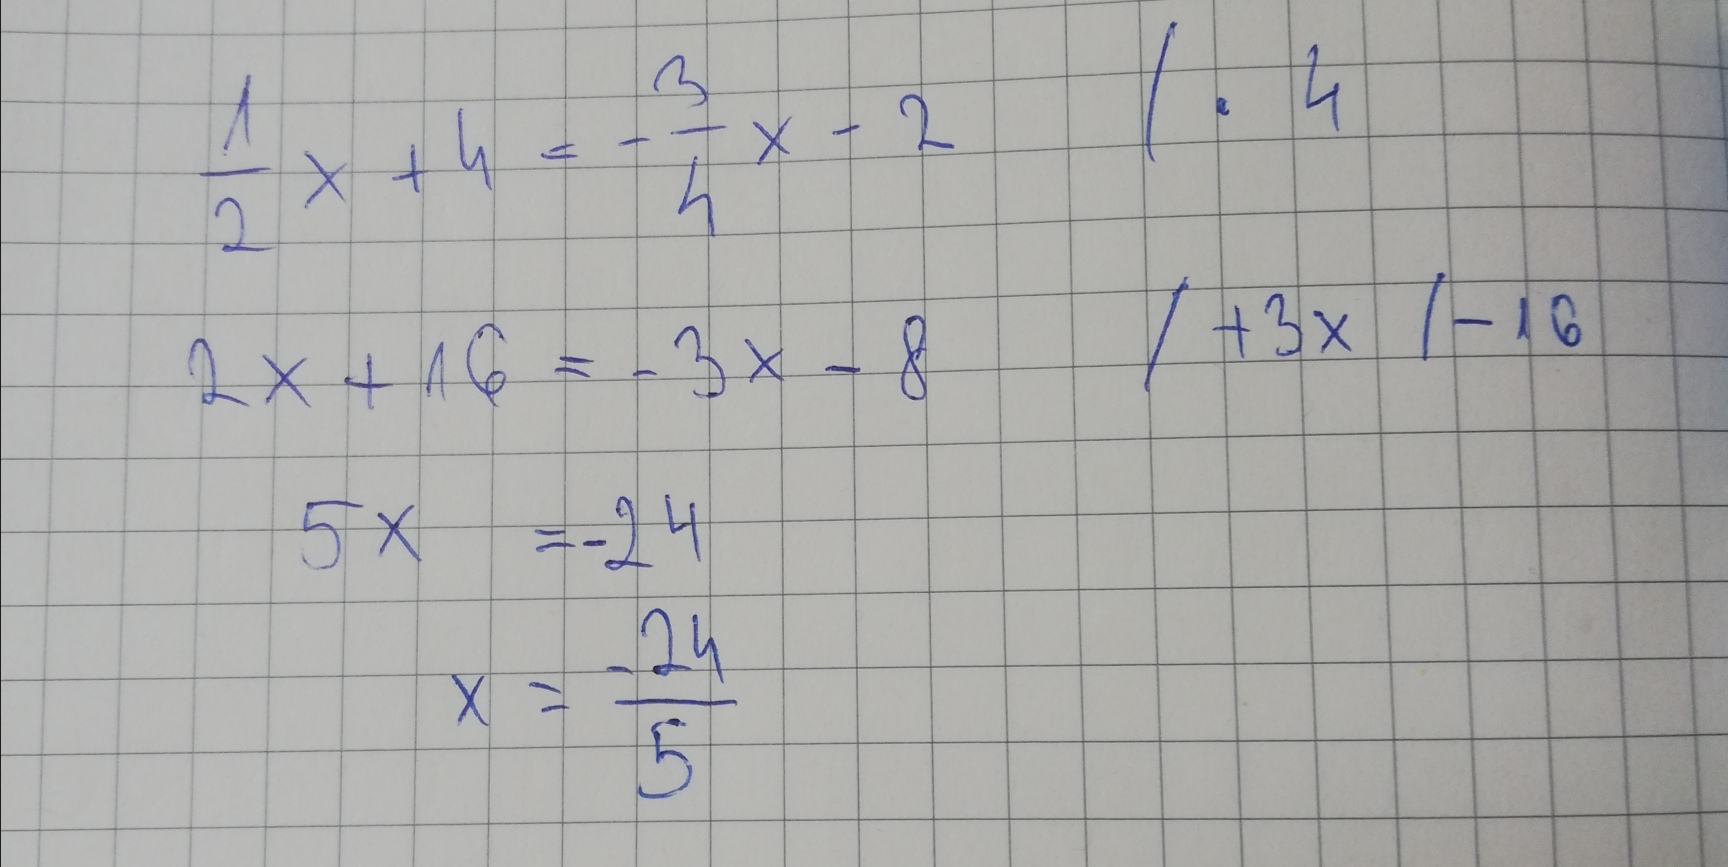 1/2 x + 4 = - 3/4 x - 2 / · 4
2x + 16 = - 3x - 8 / +3x / - 16
5x = -24
x = -24/5